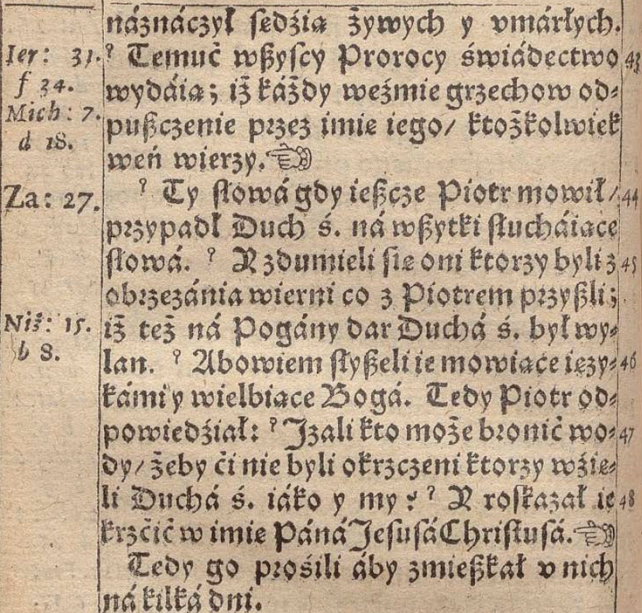 náznáczył sędźią żywych y vmárłych.
Ier: 31.
f 34.
Mich: 7.
d 18.
? Temuć wßyscy Prorocy świádectwo 43
wydáią; iż káżdy weźmie grzechow od⸗
pußczenie przez imie iego/ ktożkolwiek
weń wierzy. ☜
Za: 27.
? Ty słowá gdy ießcze Piotr mowił/ 44
przypadł Duch ś. ná wßytki słucháiące
słowá. ? A zdumieli się oni ktorzy byli z 45
obrzezánia wierni co z Piotrem przyßli;
Niż: 15.
b 8.
iż też ná Pogány dar Duchá ś. był wy⸗
lan. ? Abowiem słyßeli ie mowiące ięzy⸗ 46
kámi y wielbiące Bogá. Tedy Piotr od⸗
powiedźiał: ? Izali kto może bronić wo⸗ 47
dy/ żeby ći nie byli okrzczeni ktorzy wźię⸗
li Duchá ś. iáko y my? ? A roskazał ie 48
krzćić w imie Páná Jesusá Christusá. ☜
Tedy go prośili áby zmießkał v nich
ná kilká dni.